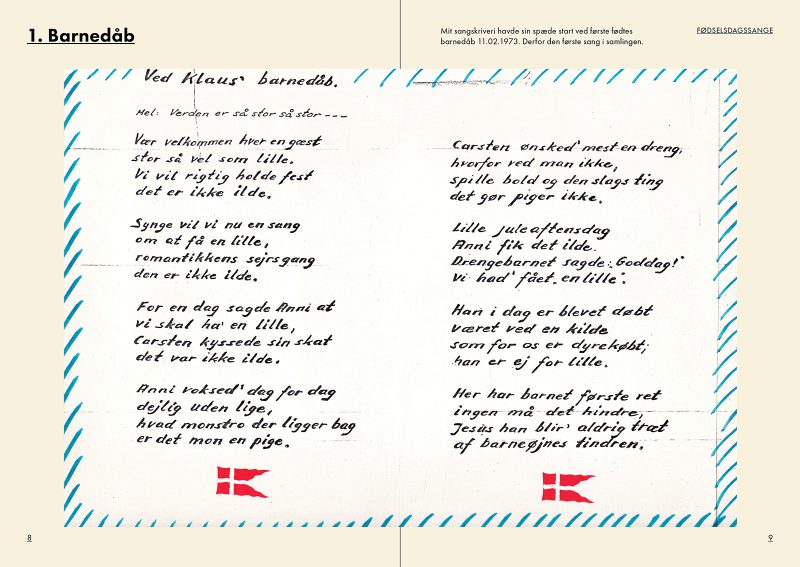 1. Barnedåb
Mit sangskriveri havde sin spæde start ved første fødtes
barnedåb 11.02.1973. Derfor den første sang i samlingen.
FØDSELSDAGSSANGE
Ved Klaus' barnedåb.
Mel: Verden er så stor så stor ---
Vær velkommen hver en gæst
stor så vel som lille.
Vi vil rigtig holde fest
det er ikke ilde.
Synge vil vi nu en sang
om at få en lille,
romantikkens sejrsgang
den er ikke ilde.
For en dag sagde Anni at
vi skal ha' en lille,
Carsten kyssede sin skat
det var ikke ilde.
Anni voksed' dag for dag
dejlig uden lige,
hvad monstro der ligger bag
er det mon en pige.
Carsten ønsked' mest en dreng,
hvorfor ved man ikke,
spille bold og den slags ting
det gør piger ikke.
Lille juleaftensdag
Anni fik det ilde.
Drengebarnet sagde: "Goddag!"
Vi had' fået "en lille".
Han i dag er blevet døbt
været ved en kilde
som for os er dyrekøbt;
han er ej for lille.
Her har barnet første ret
ingen må det hindre,
Jesus han blir' aldrig træt
af barneøjnes tindren.
8
9